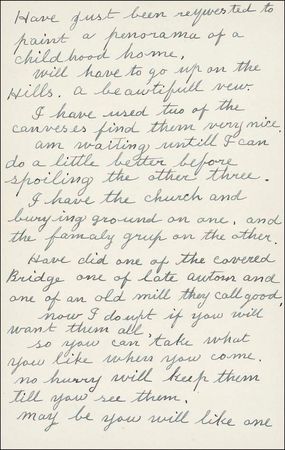 Have just been reqwested to
paint a penorama of a
childhood home,
will have to go up on the
Hills. a beawtifull vew.
I have used two of the
canveses find them very nice.
am waiting untill I can
do a little better before
spoiling the other three.
I have the church and
burying ground on one. and
the famaly grup on the other.
Have did one of the covered
Bridge one of late autom and
one of an old mill they call good,
now I doupt if you will
want them all
so you can take what
you like when you come.
no hurry will keep them
till you see them.
may be you will like one